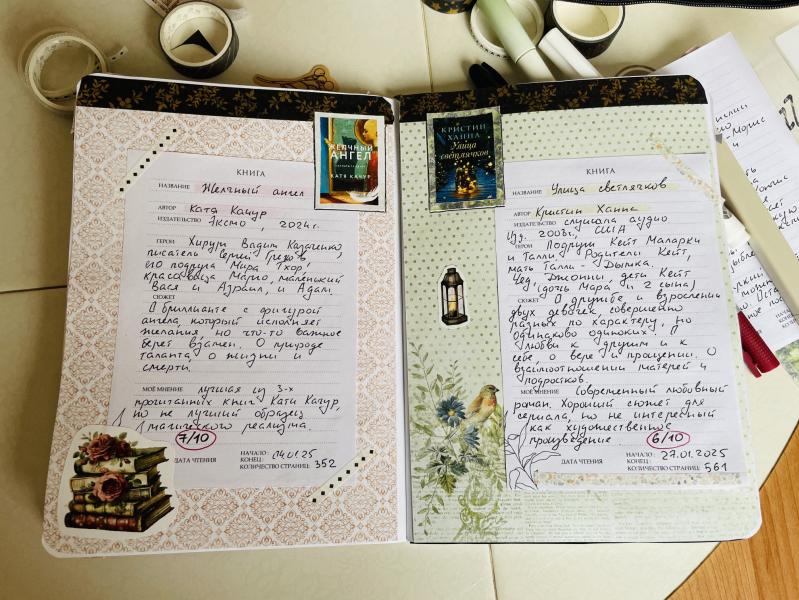 ЖЕЛЧНЫЙ
АНГЕЛ
КАТЯ КАЧУР
КНИГА
НАЗВАНИЕ Желчный ангел
АВТОР Катя Качур
ИЗДАТЕЛЬСТВО Эксмо, 2024г.
ГЕРОИ Хирург Вадим Казаченко,
писатель Сергей Грехов
его подруга Мира Тхор,
красавица Марго, маленький
Вася и Азраил, и Адам.
СЮЖЕТ
О бриллианте с фигурой
ангела, который исполняет
желания но что-то важное
берёт взамен. О природе
таланта, о жизни и
смерти.
МОЁ МНЕНИЕ лучшая из 3-х
прочитанных книг Кати Качур,
но не лучший образец
магического реализма.
7/10
ДАТА ЧТЕНИЯ
НАЧАЛО: 04.01.25
КОНЕЦ:
КОЛИЧЕСТВО СТРАНИЦ: 352
КРИСТИН
ХАННА
Улица
светлячков
КНИГА
НАЗВАНИЕ Улица светлячков
АВТОР Кристин Ханна
ИЗДАТЕЛЬСТВО слушала аудио
Изд. 2008г., США
ГЕРОИ Подруги Кейт Маларки
и Талли. Родители Кейт,
мать Талли - Дымка.
Чед, Джонни, дети Кейт
(дочь Мара и 2 сына)
СЮЖЕТ О дружбе и взрослении
двух девочек, совершенно
разных по характеру, но
одинаково одиноких. О
любви к другим и к
себе, о вере и прощении. О
взаимоотношении матерей и
подростков.
МОЁ МНЕНИЕ Современный любовный
роман. Хороший сюжет для
сериала, но не интересный
как художественное
произведение. 6/10
ДАТА ЧТЕНИЯ
НАЧАЛО:
КОНЕЦ: 27.01.2025
КОЛИЧЕСТВО СТРАНИЦ: 561